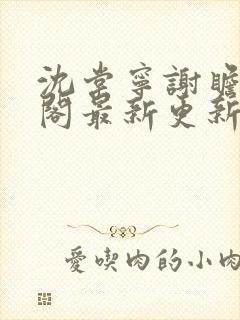 沈棠寧謝瞻
閣最新更新
愛喫肉的小肉